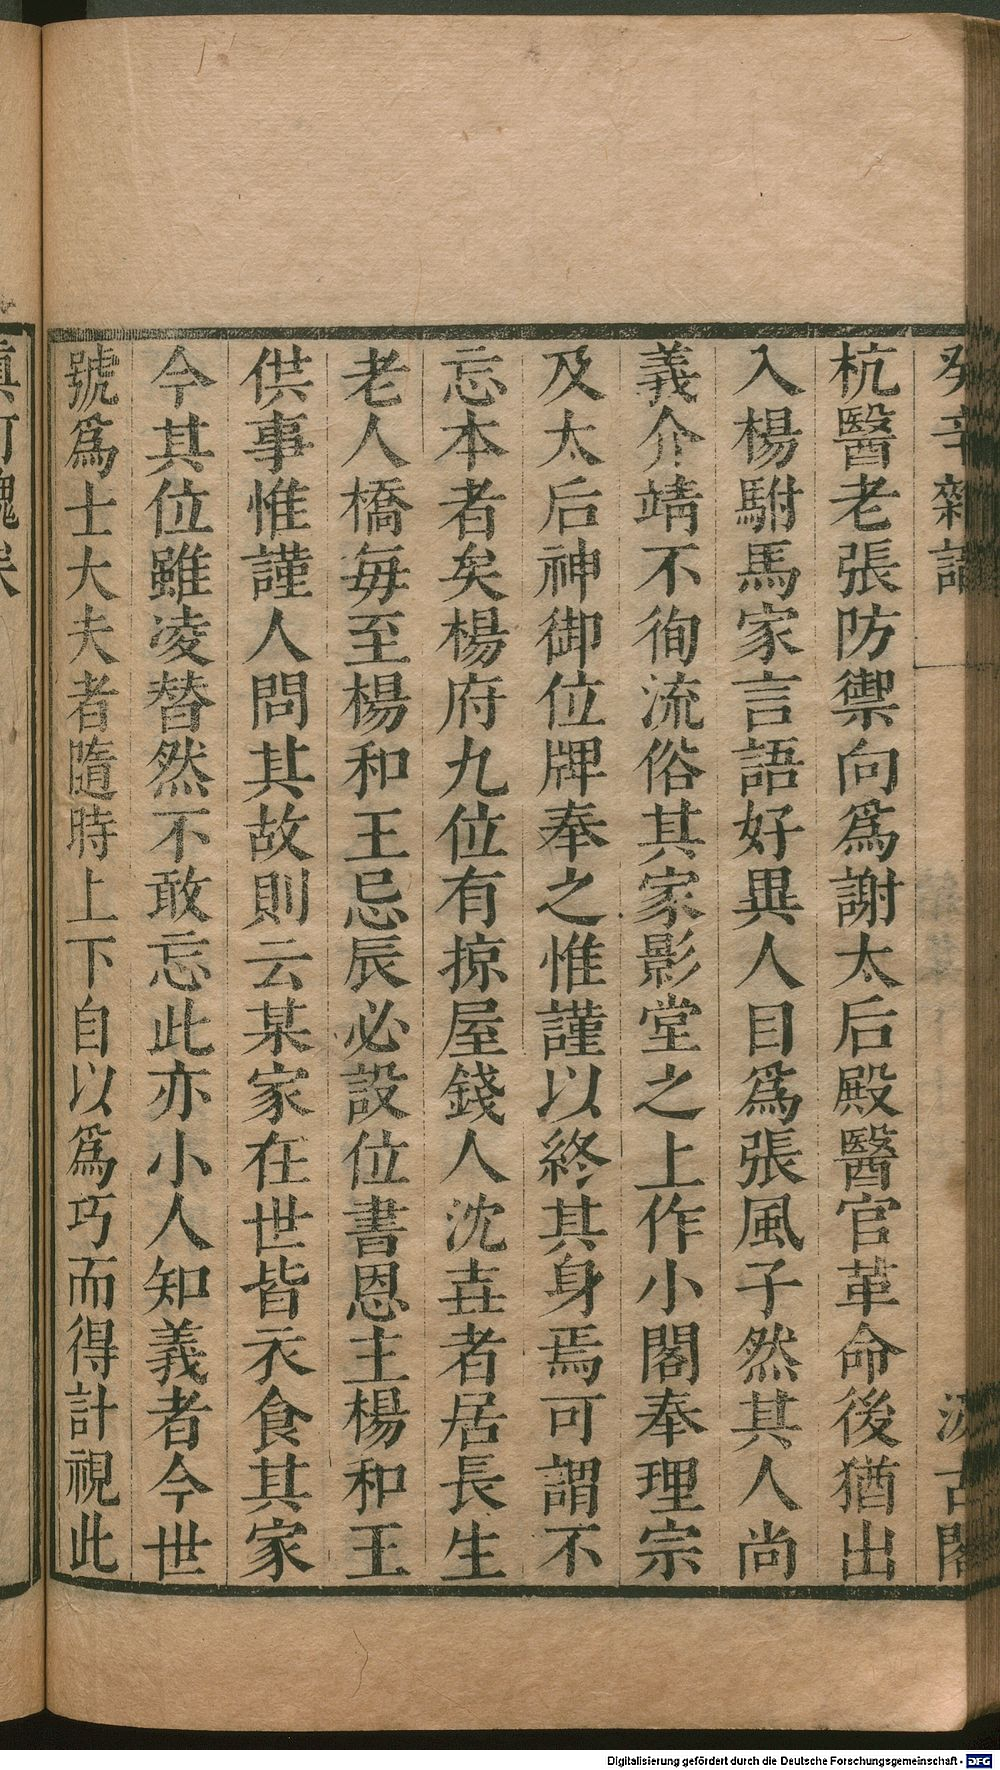 癸辛雜識
汲古閣
杭醫老張防禦向爲謝太后殿醫官革命後猶出
入楊駙馬家言語好異人目爲張風子然其人尚
義介靖不徇流俗其家影堂之上作小閣奉理宗
及太后神御位牌奉之惟謹以終其身焉可謂不
忘本者矣楊府九位有掠屋錢人沈壵者居長生
老人橋每至楊和王忌辰必設位書恩主楊和王
供事惟謹人問其故則云某家在世皆衣食其家
今其位雖凌替然不敢忘此亦小人知義者今世
號爲士大夫者隨時上下自以爲巧而得計視此
真可愧矣
Digitalisierung gefördert durch die Deutsche Forschungsgemeinschaft - DFG